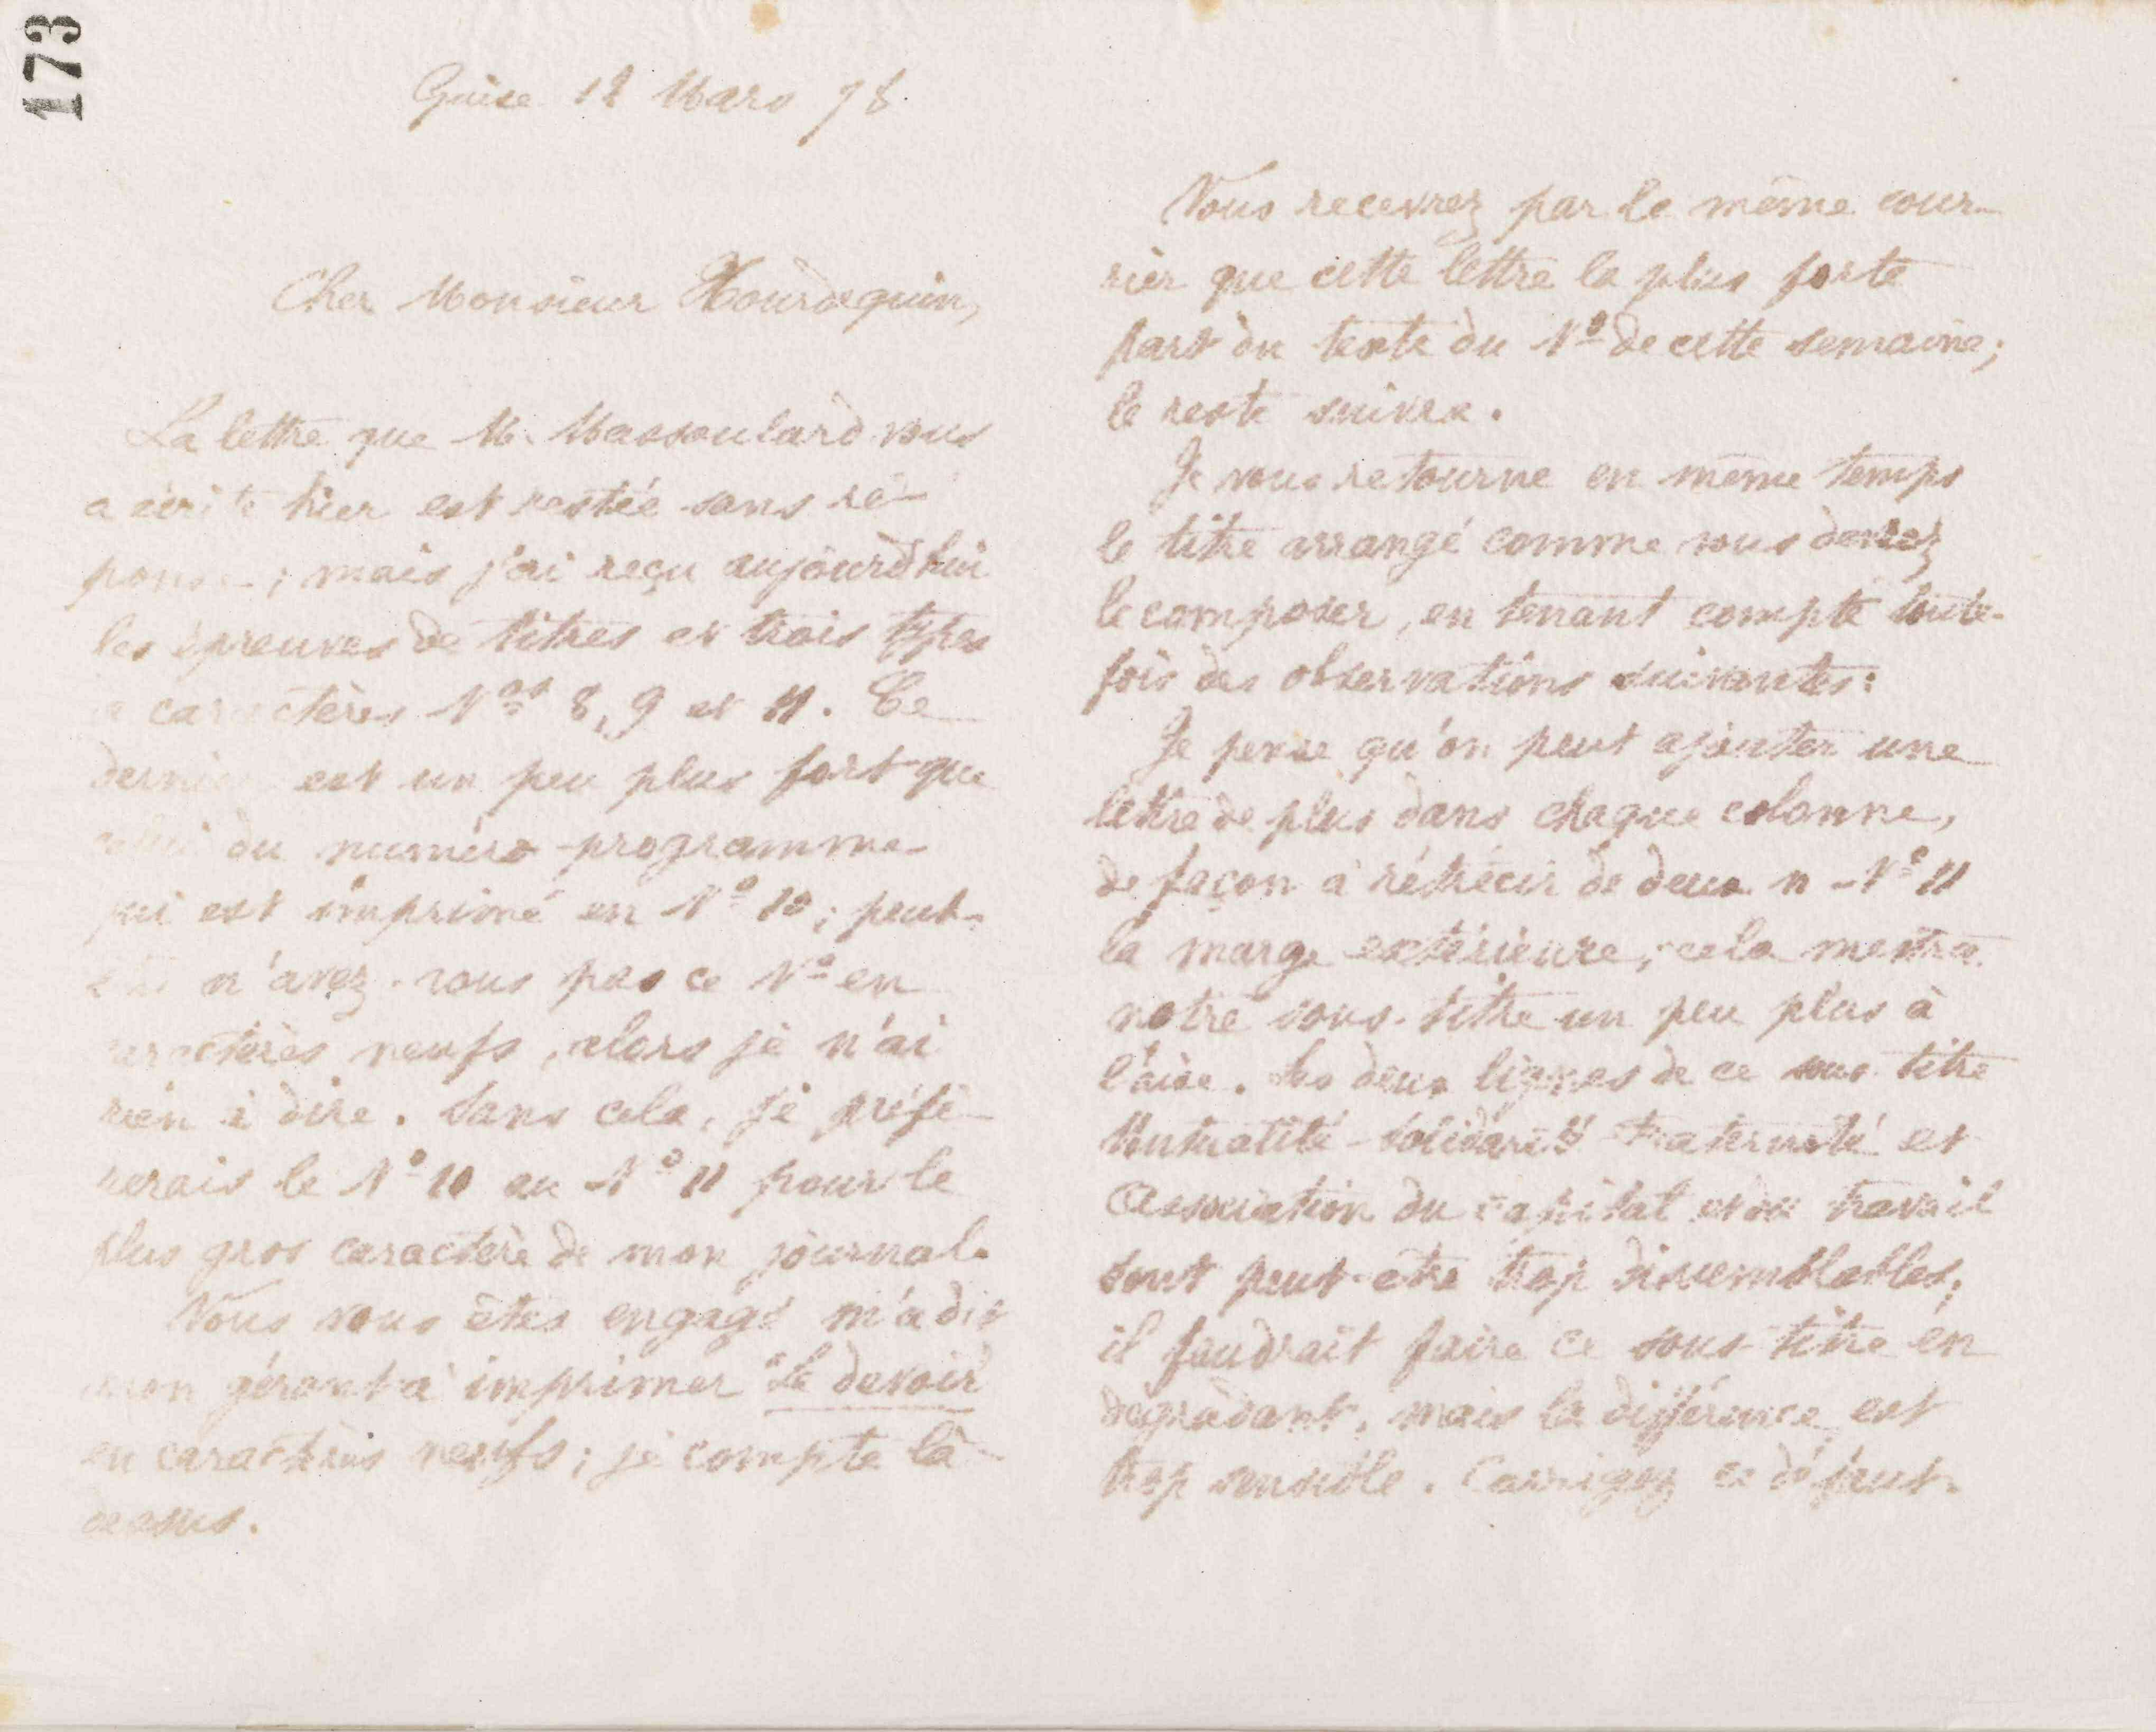 173
Guise 12 Mars 78.
Cher Monsieur Hourdequin,
La lettre que M. Massoulard vous
a écrite hier est restée sans ré-
ponse ; mais j'ai reçu aujourd'hui
les épreuves de titres et trois types
caractères Nos 8, 9 et 11. Ce
dernier est un peu plus fort que
celui du numéro-programme
qui est imprimé en No 10 ; peut-
être n'avez-vous pas ce No en
caractères neufs, alors je n'ai
rien à dire. Sans cela, je préfé-
rerais le No 10 au No 11 pour le
plus gros caractère de mon journal.
Vous vous êtes engagé m'a dit
mon gérant à imprimer "Le devoir
en caractères neufs ; je compte là-
dessus.
Vous recevrez par le même cour-
rier que cette lettre la plus forte
part du texte du No de cette semaine ;
le reste suivra.
Je vous retourne en même temps
le titre arrangé comme vous devrez
le composer, en tenant compte toute-
fois des observations suivantes :
Je pense qu'on peut ajouter une
lettre de plus dans chaque colonne,
de façon à rétrécir de deux n - No 11
la marge extérieure, cela mettra
notre sous-titre un peu plus à
l'aise. Les deux lignes de ce sous-titre
Mutualité-Solidarité Fraternité et
Association du capital et du travail
sont peut-être trop dissemblables,
il faudrait faire ce sous-titre en
dégradant, mais la différence est
trop sensible. Corrigez ce défaut.